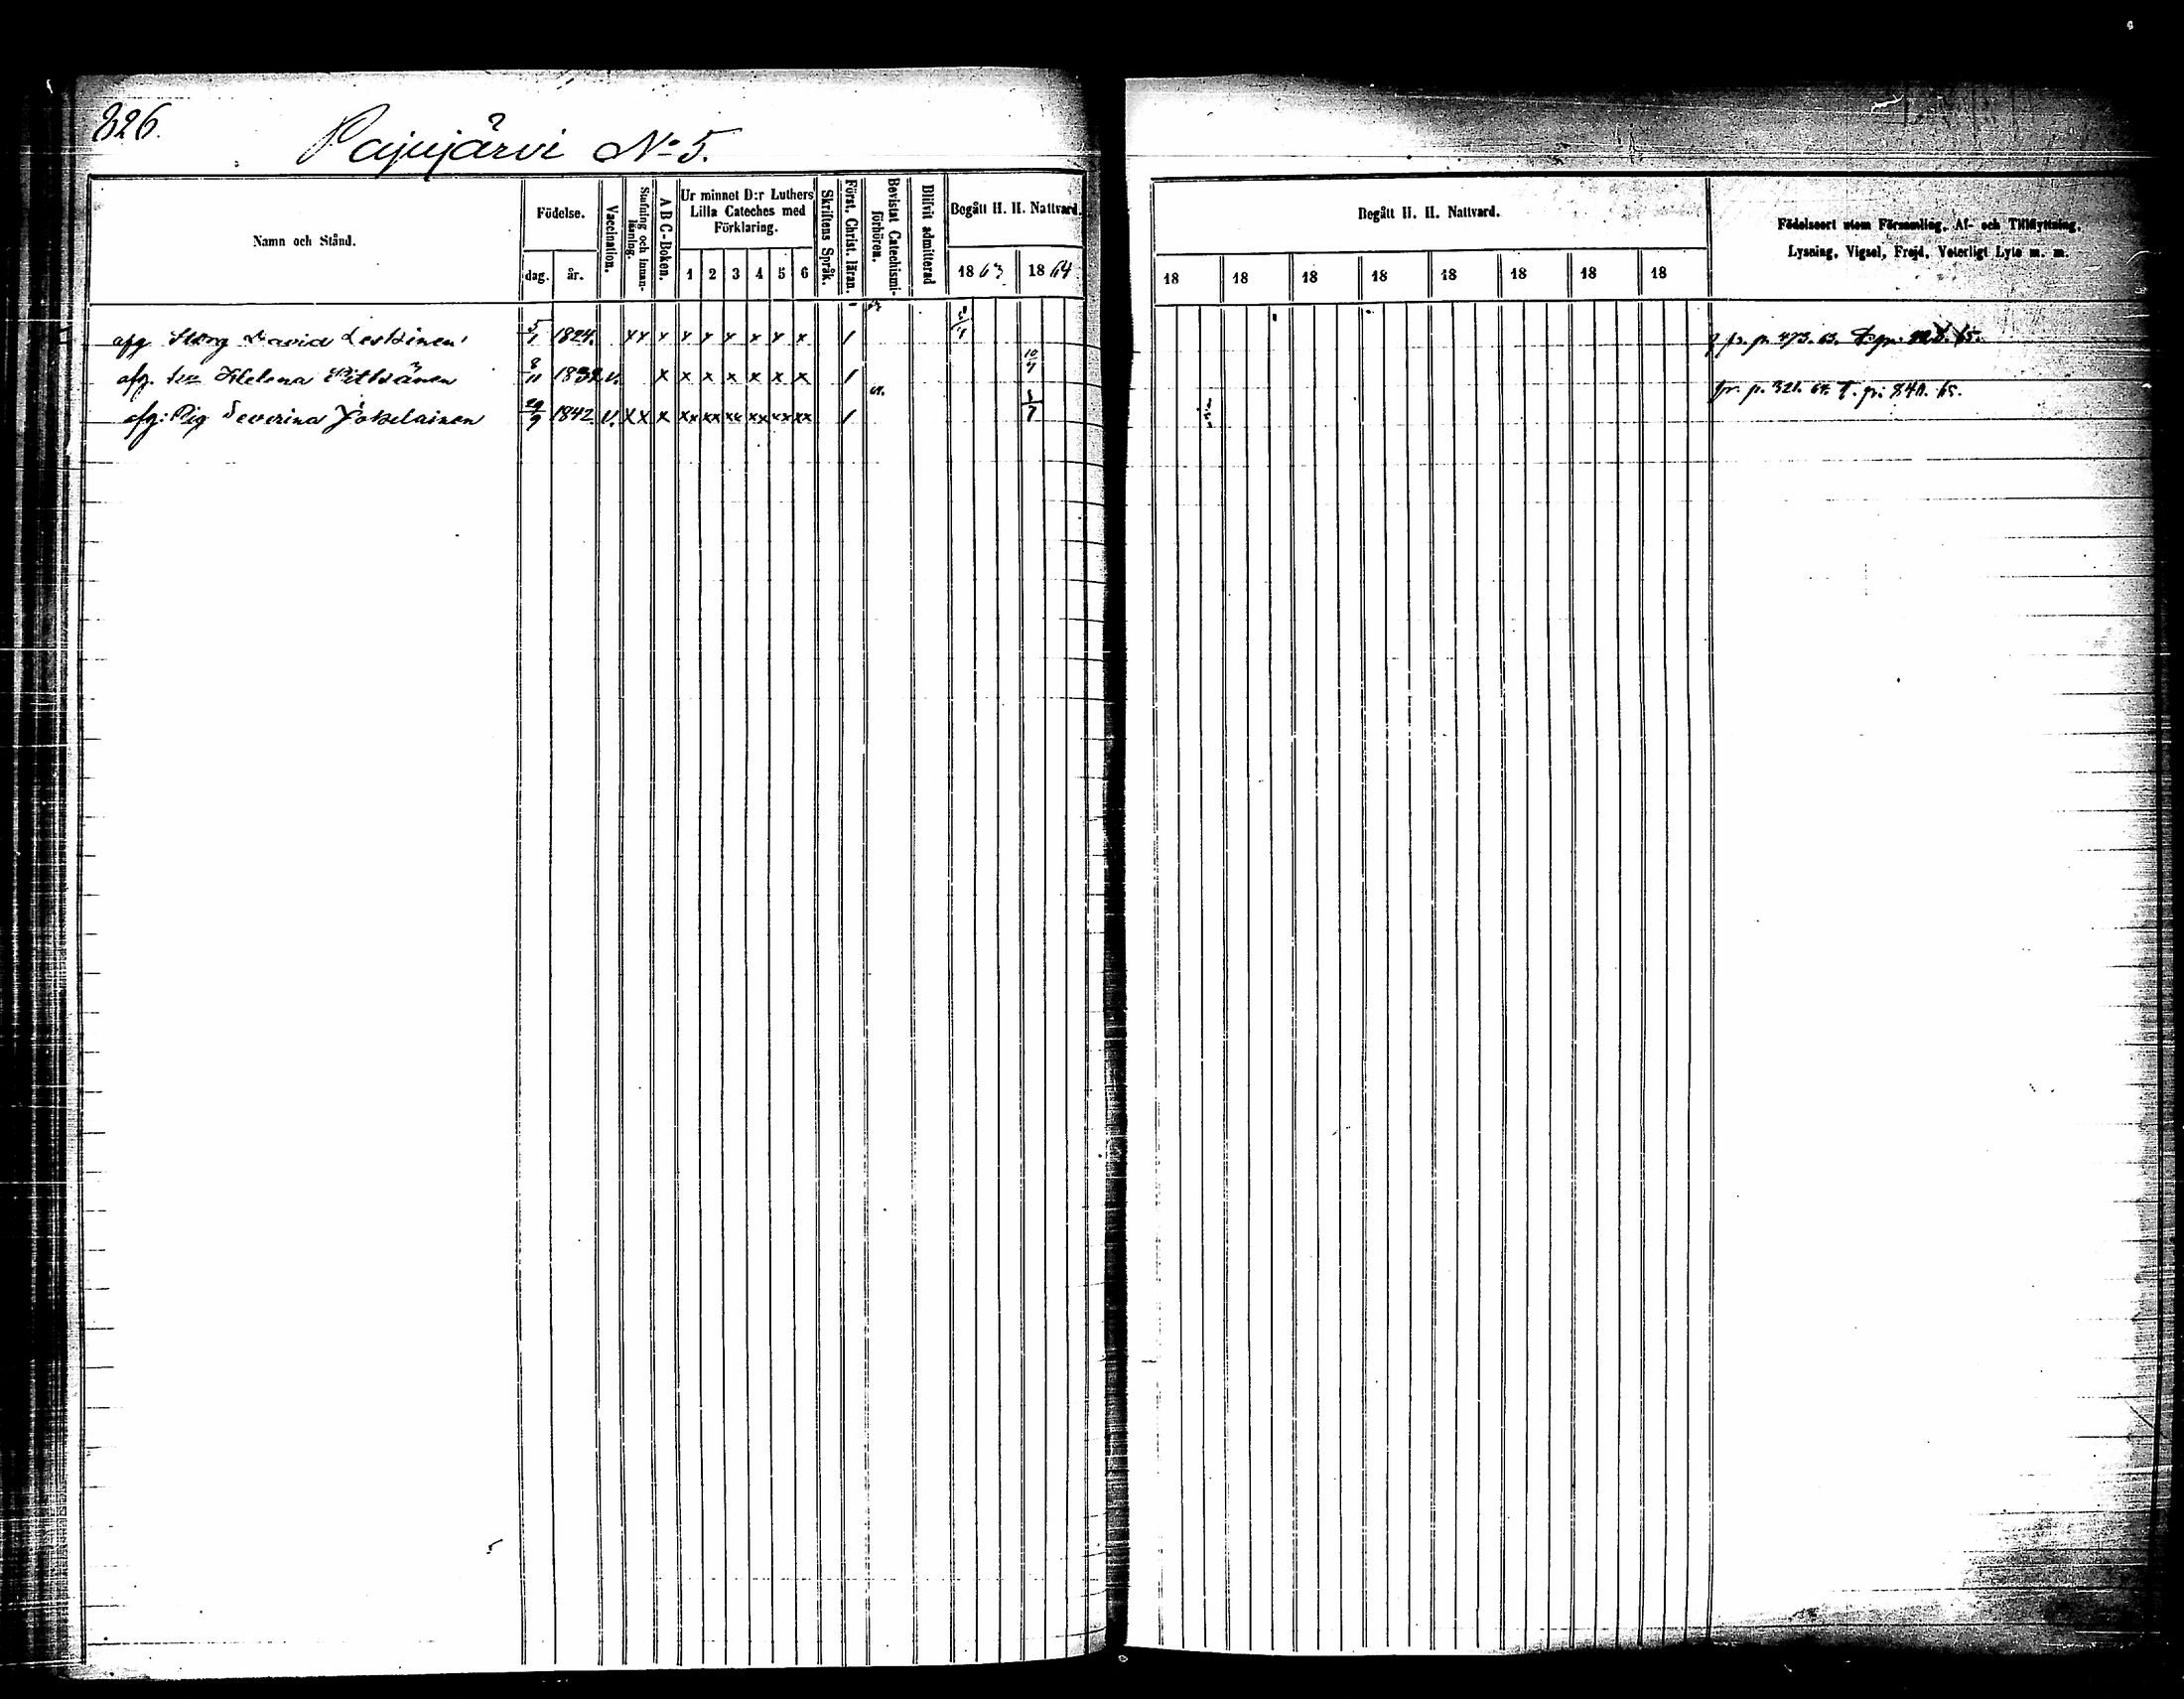 826.
Pajujärvi No 5.
Namn och Stånd.
Födelse.
dag.
år.
Vaccination.
Stafning och innan-
läsning.
A B C-Boken.
Ur minnet D:r Luthers
Lilla Cateches med
Förklaring.
1 2 3 4 5 6
Skriftens Språk.
Först. Christ. läran.
Bevistat Catechismi-
förhören.
Blifvit admitterad
Begått H. H. Nattvard.
1863 1864
Begått H. H. Nattvard.
18 18 18 18 18 18 18 18
Födelseort utom Församling, Af- och Tillflyttning,
Lysning, Vigsel, Frejd, Veterligt Lyte m. m.
afg David Leskinen 5/1 1824. x x x x x x x x x 1 fr. p. 473. 63.
afg. Helena 8/11 1832 v. x x x x x x x 1 10/7
afg: Pig Severina Jokelainen 29/9 1842. v. x x x xx xx xx xx xx xx 1 64. 3/7 fr. p. 321. 64. T. p. 840. 65.